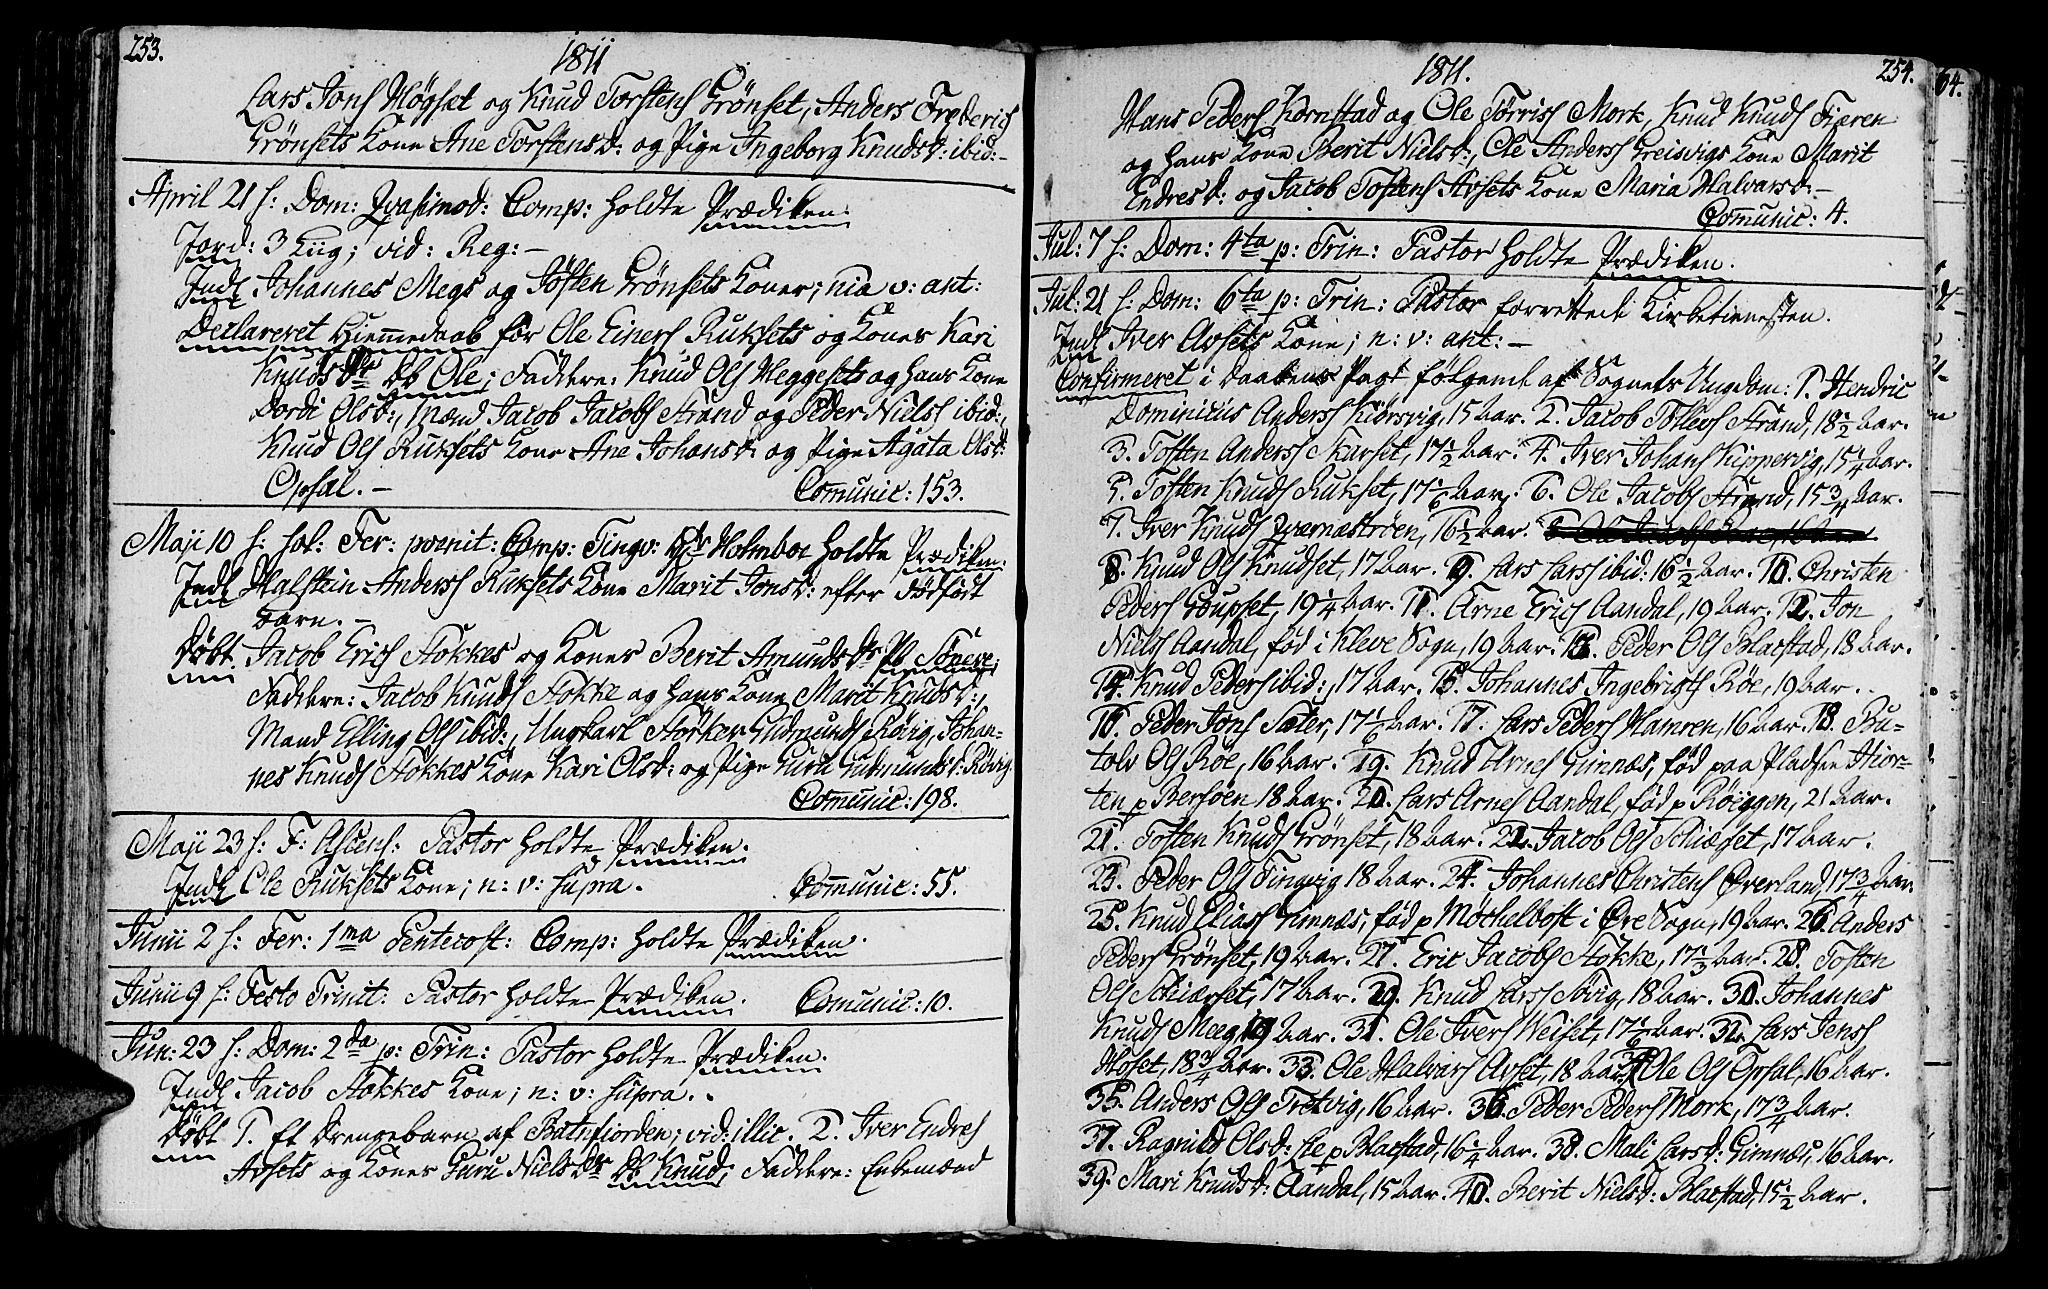 253.
1811
Lars Jons Høgset og Knud Torstens Grönset, Anders Frederics
Grönsets Kone Ane Torstensd: og Pige Ingeborg Knudsd: ibid:-
April 21 h: Dom: Qvasimod: Comp: holdte Prædiken.
Jord: 3 Liig; vid: Reg:-
Indl Johannes Megs og Töften Grönsets Koner; nia v: ant:
Declareret Hiemmedaab for Ole Einers Ruksets og Kones Kari
Knudsdr Db Ole; Faddere: Knud Ols Meggesets og hans Kone
Dordi Olsd:, Mænd Jacob Jacobs Strand og Peder Niels ibid:,
Knud Ols Ruksets Kone Ane Johansd: og Pige Agata Olsd:
Opsal.- Comunic: 153.
Maji 10 h: sol: Fer: poenit: Comp: Tingv: Hr Holmboe holdte Prædiken.
Indl Halstein Anderss Ruksets Kone Marit Jonsd: efter dödfödt
Barn.-
Döbt Jacob Erics Stokkes og Kones Berit Amundsdr Pb Sönere;
Faddere: Jacob Knuds Stokke og hans Kone Marit Knudsd:,
Mand Elling Ols ibid:, Ungkarl Störker Gudmunds Rövig, Johan-
nes Knuds Stokkes Kone Kari Olsd: og Pige Guru Gudmundsd: Rövig.
Comunic: 198.
Maji 23 h: F: Ascens: Pastor holdte Prædiken.
Indl Ole Ruksets Kone; n: v: supra. Comunic: 55.
Junii 2 h: Fer: 1ma Pentecost: Comp: holdte Prædiken.
Junii 9 h: Festo Trinit: Pastor holdte Prædiken. Comunic: 10.
Jun: 23 h: Dom: 2da p: Trin: Pastor holdte Prædiken.
Indl Jacob Stokkes Kone; n: v: supra.
Döbt 1. Et Drengebarn af Batnfiorden; vid: illic. 2. Iver Endres
Avsets og Kones Guru Nielsdr Db Knud; Faddere: Enkemænd
1811.
254.
Hans Peders Kornstad og Ole Törriss Mork, Knud Knuds Fiæren
og hans Kone Berit Nielsd:, Ole Anderss Greisvigs Kone Marit
Endresd: og Jacob Tostens Avsets Kone Maria Halvarsd:-
Comunic: 4.
Jul: 7 h: Dom: 4ta p: Trin: Pastor holdte Prædiken.
Jul: 21 h: Dom: 6ta p: Trin: Pastor forrettede Kirketienesten.
Indl Iver Avsets Kone; n: v: ant:-
Confirmeret i Daabens Pagt følgende af Sognets Ungdom: 1. Hendric
Dominicus Anderss Kiörsvig, 15 Aar. 2. Jacob Tollevs Strand, 18 1/2 Aar.
3. Tosten Anderss Skarset, 17 1/2 Aar. 4. Iver Johans Kippervig, 15 1/4 Aar.
5. Tosten Knuds Rukset, 17 1/6 Aar. 6. Ole Jacobs Strand, 15 3/4 Aar.
7. Iver Knuds Qværnæströen, 16 1/2 Aar.
8. Knud Ols Knudset, 17 Aar. 9. Lars Larss ibid: 16 1/2 Aar. 10. Christen
Peders Goupset, 19 1/4 Aar. 11. Arne Erics Aandal, 19 Aar. 12. Jon
Niels Aandal, fød i Kleve Sogn, 19 Aar. 13. Peder Ols Blaestad, 18 Aar.
14. Knud Peders ibid:, 17 Aar. 15. Johannes Ingebrigts Röe, 19 Aar.
16. Peder Jons Sæter, 17 1/6 Aar. 17. Lars Peders Hamren, 16 Aar. 18. Bu-
tolv Ols Röe, 16 Aar. 19. Knud Arnes Gimnæs, fød paa Pladsen Hior-
ten p Bersöen 18 Aar. 20. Lars Arnes Aandal, fød p Röiggen, 21 Aar.
21. Tosten Knuds Grönset, 18 Aar. 22. Jacob Ols Schiærset, 17 Aar.
23. Peder Ols Tingvig 18 Aar. 24. Johannes Christens Överland, 17 3/4 Aar
25. Knud Elias Gimnæs, fød p Möchelbost i Öre Sogn, 19 Aar. 26. Anders
Peders Grönset, 19 Aar. 27. Eric Jacobs Stokke, 17 1/3 Aar. 28. Tosten
Ols Schiærset, 17 Aar. 29. Knud Larss Sövig, 18 Aar. 30. Johannes
Knuds Meeg, 19 Aar. 31. Ole Ivers Weiset, 17 1/6 Aar. 32. Lars Jenss
Höset, 18 3/4 Aar. 33. Ole Halvars Avset, 18 Aar. 34. Ole Ols Opsal, 16 Aar.
35. Anders Ols Tretvig, 16 Aar. 36. Peder Peders Mork, 17 3/4 Aar.
37. Ragnild Olsd: Lie p Blaestad, 16 1/4 Aar. 38. Mali Larsd: Gimnæs, 16 Aar.
39. Mari Knudsd: Aandal, 15 Aar. 40. Berit Nielsd: Blaestad, 15 1/2 Aar.